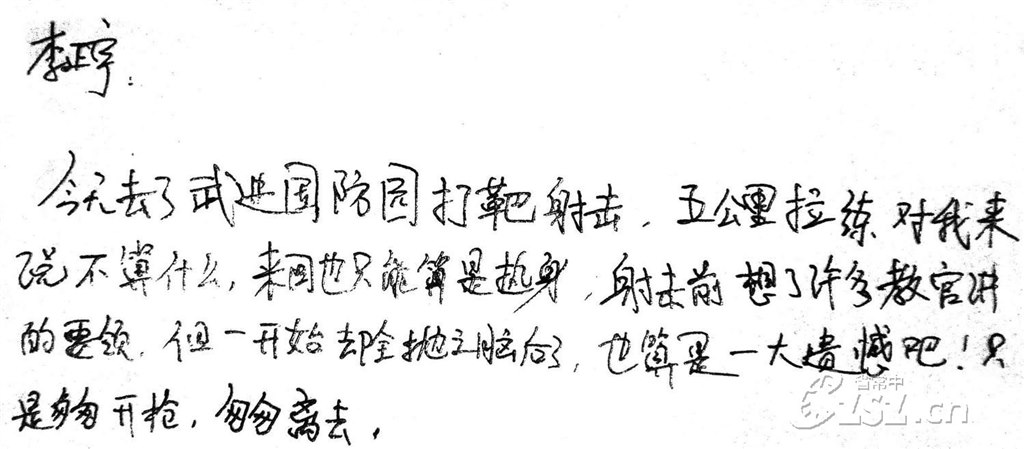 李正宇：
今天去了武进国防园打靶射击，五公里拉练对我来
说不算什么，来回也只能算是热身，射击前想了许多教官讲
的要领，但一开始却全抛之脑后了，也算是一大遗憾吧！只
是匆匆开枪，匆匆离去，
省常中
CZSZ.cn